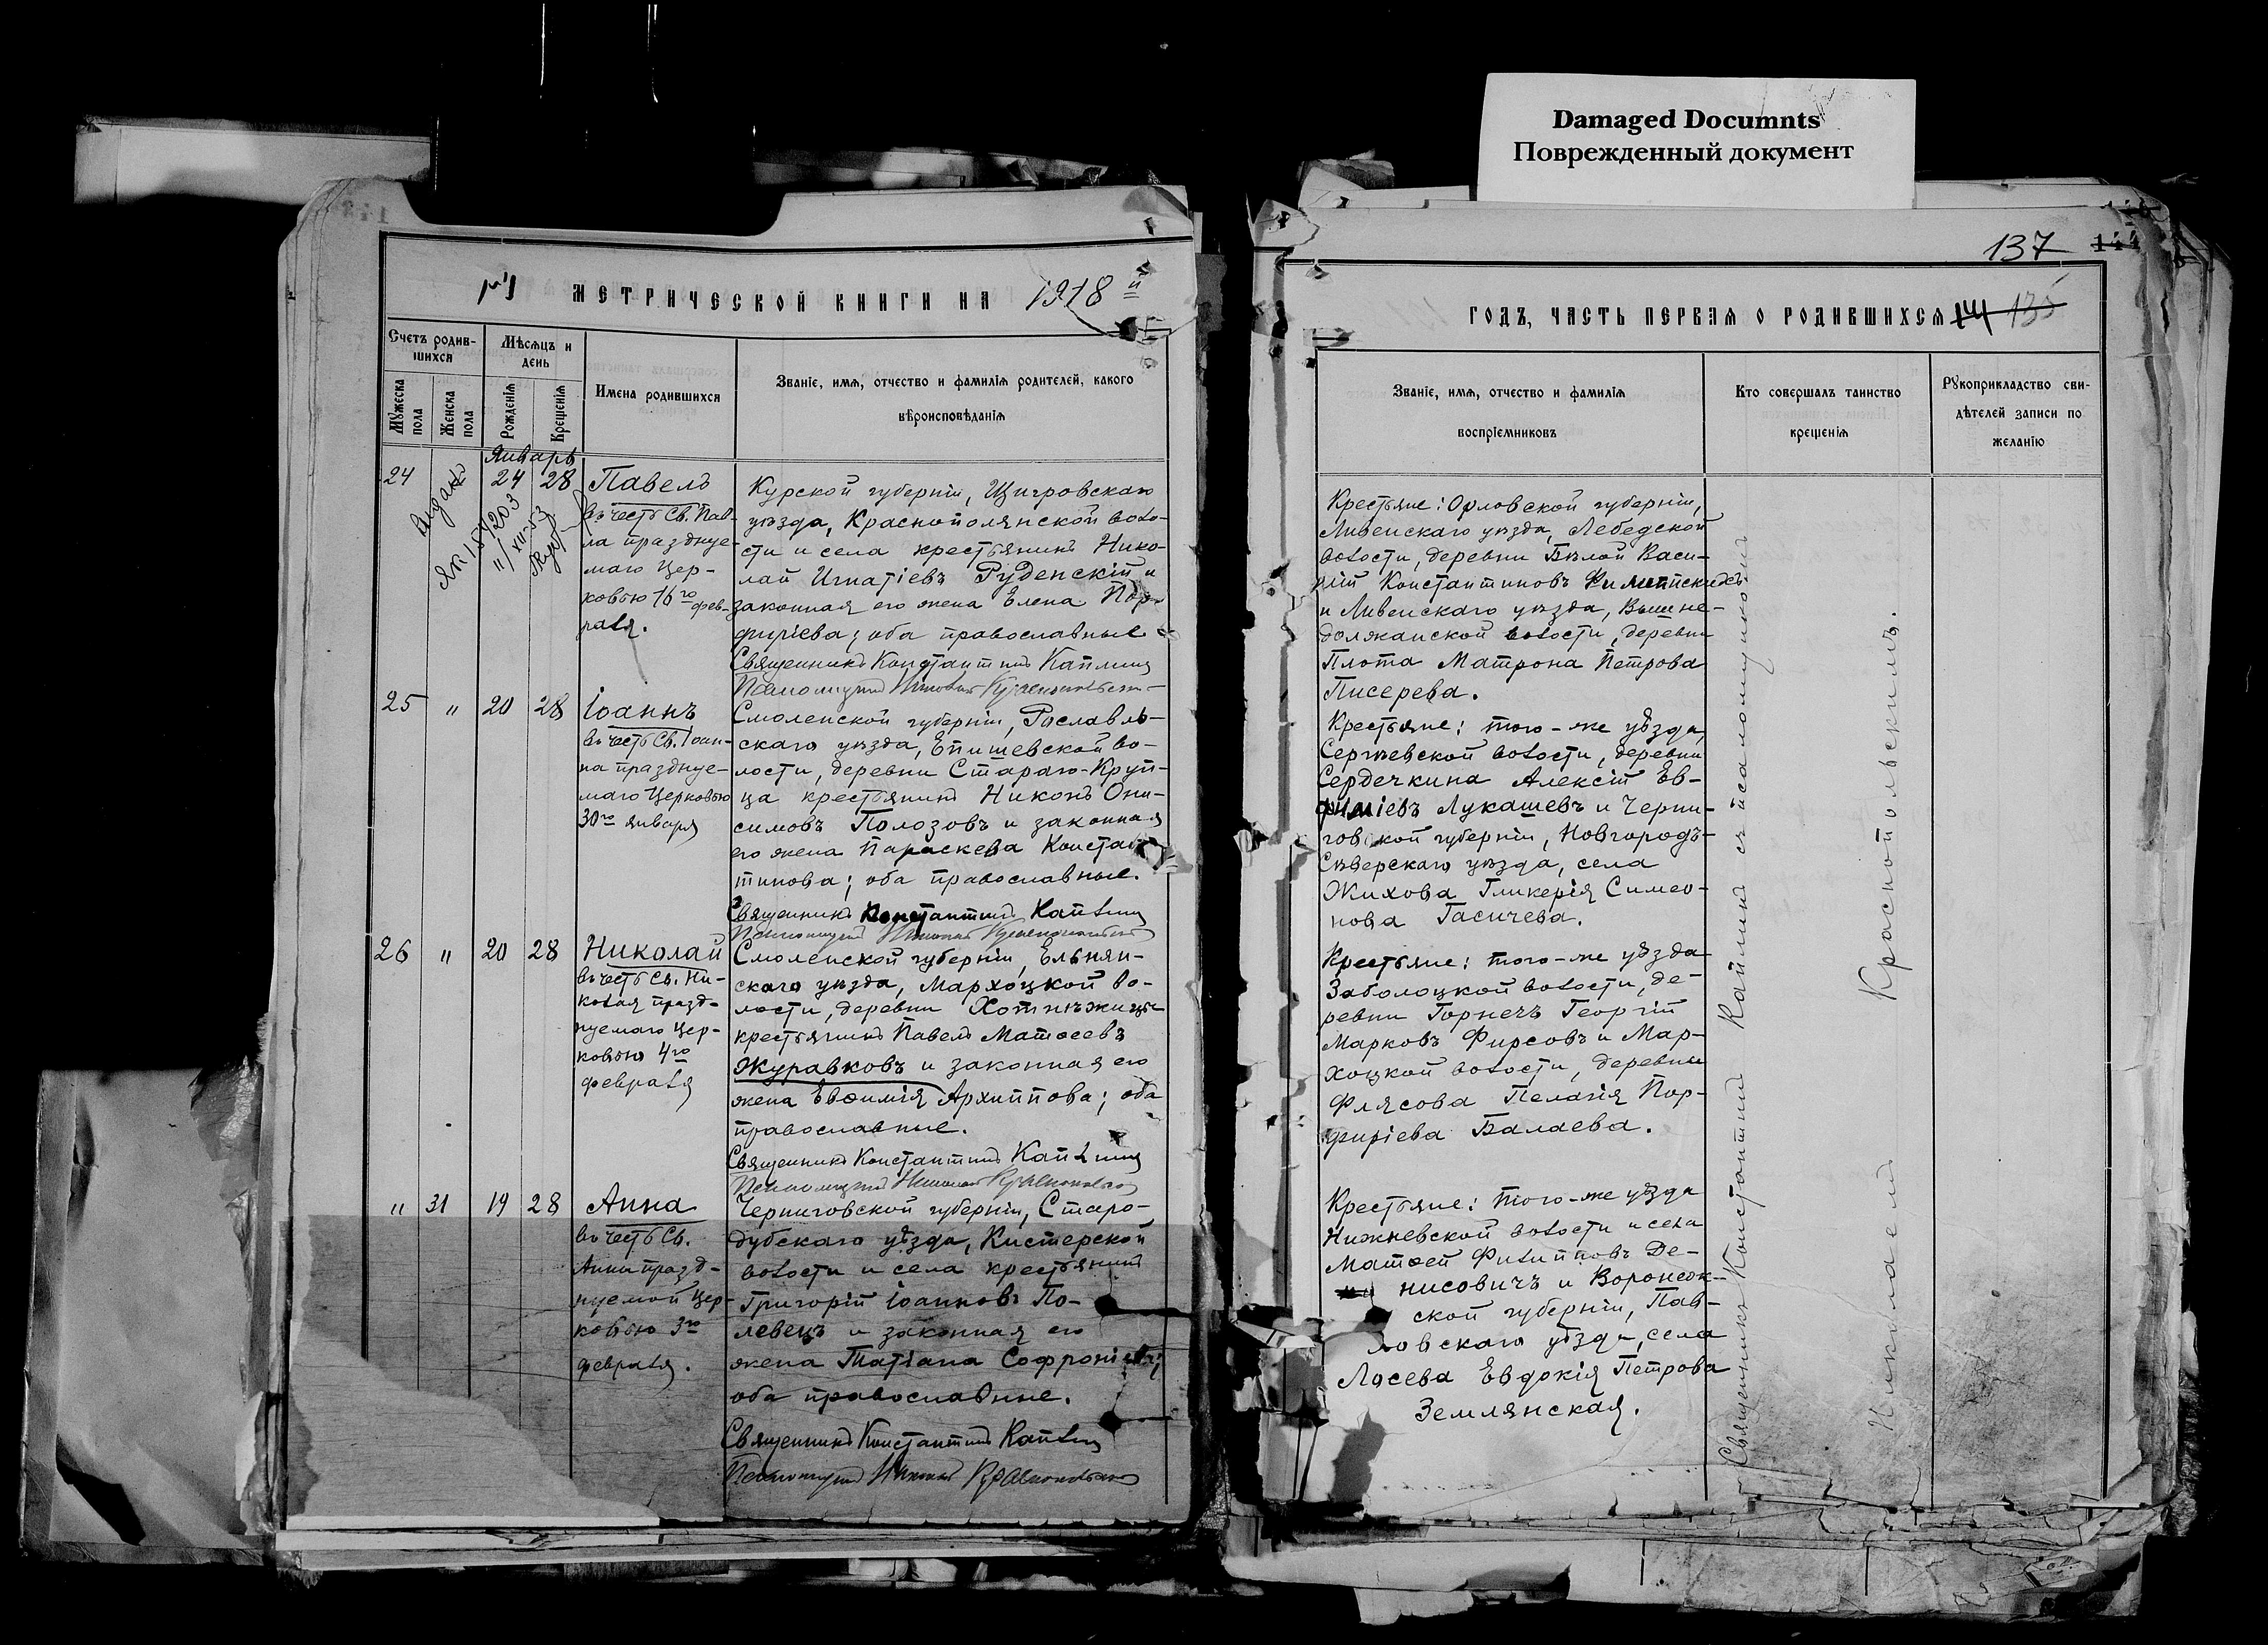 Damaged Documnts
Поврежденный документ
МЕТРИЧЕСКОЙ КНИГИ НА 1918 й
Счетъ родив-
шихся
Мѣсяцъ и
день
Мужеска
пола
Женска
пола
Рожденія
Крещенія
Имена родившихся
Званіе, имя, отчество и фамилія родителей, какого
вѣроисповѣданія
Январь
24 24 28 Павелъ
въ честь Св. Пав-
ла празднуе-
маго Цер-
ковью 16го фев-
раля.
Курской губерніи, Щигровскаго
уѣзда, Краснополянской воло-
сти и села крестьянинъ Нико-
лай Игнатіевъ Руденскій и
законная его жена Елена Пор-
фиріева; оба православные
Священникъ Константинъ Каплинъ
25 " 20 28 Іоаннъ
въ честь Св. Іоан-
на празднуе-
маго Церковью
30го января
Смоленской губерніи, Рославль-
скаго уѣзда, Епишевской во-
лости, деревни Стараго-Круп-
ца крестьянинъ Никонъ Они-
симовъ Полозовъ и законная
его жена Параскева Констан-
тинова; оба православные.
Священникъ Константинъ Каплинъ
26 " 20 28 Николай
въ честь Св. Ни-
колая празд-
нуемаго Цер-
ковью 4го
февраля
Смоленской губерніи, Ельнин-
скаго уѣзда, Мархоцкой во-
лости, деревни
крестьянинъ Павелъ Матѳеевъ
Журавковъ и законная его
жена Евѳимія Архиппова; оба
православные.
Священникъ Константинъ Каплинъ
" 31 19 28 Анна
въ честь Св.
Анны празд-
нуемой Цер-
ковью 3го
февраля.
Черниговской губерніи, Старо-
дубскаго уѣзда, Кистерской
волости и села крестьянинъ
Григорій Іоанновъ По-
левецъ и законная его
жена Татіана
оба православные.
Священникъ Константинъ Каплинъ
137 144
ГОДЪ, ЧАСТЬ ПЕРВАЯ О РОДИВШИХСЯ
Званіе, имя, отчество и фамилія
воспріемниковъ
Кто совершалъ таинство
крещенія
Рукоприкладство сви-
дѣтелей записи по
желанію
Крестьяне: Орловской губерніи,
Ливенскаго уѣзда, Лебедской
волости, деревни Бѣлой Васи-
лій Константиновъ
и Ливенскаго уѣзда, Вышне-
должанской волости, деревни
Плота Матрона Петрова
Писерева.
Крестьяне: того-же уѣзда
Сергѣевской волости, деревни
Сердечкина Алексій Ев-
фиміевъ Лукашевъ и Черни-
говской губерніи, Новгородъ-
Сѣверскаго уѣзда, села
Жихова Гликерія Симео-
нова Гасичева.
Крестьяне: того-же уѣзда
Заболоцкой волости, де-
ревни Горнечъ Георгій
Марковъ Фирсовъ и Мар-
хоцкой волости, деревни
Флясова Пелагія Пор-
фиріева Балаева.
Крестьяне: того-же уѣзда
Нижневской волости и села
Матѳей Филипповъ Де-
нисовичъ и Воронеж-
ской губерніи, Пав-
ловскаго уѣзда, села
Лосева Евдокія Петрова
Землянская.
Священникъ Константинъ Каплинъ съ псаломщикомъ
Николаемъ Краснопольскимъ.